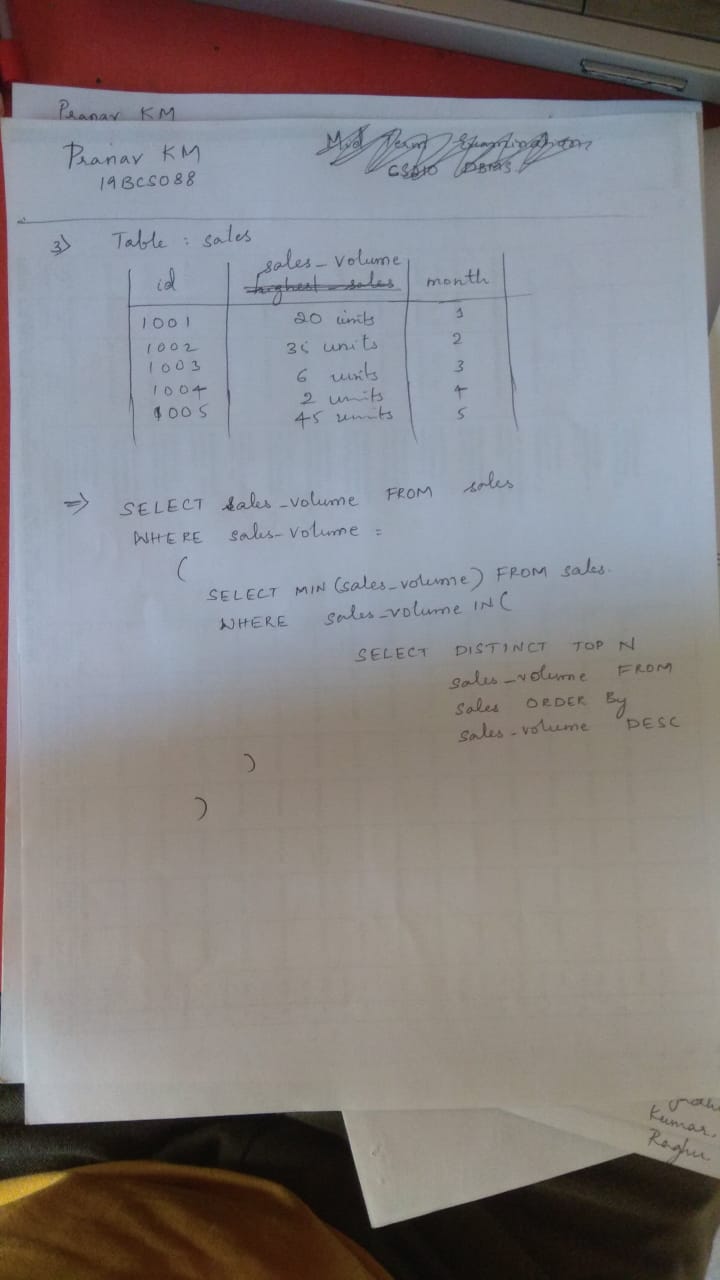 Pranav KM
Pranav KM
19BCS088
Mid Term Examination
DBMS
3) Table : sales
id sales_volume month
highest_sales
1001 20 units 1
1002 35 units 2
1003 6 units 3
1004 2 units 4
1005 45 units 5
⇒ SELECT sales_volume FROM sales
WHERE sales_volume =
(
SELECT MIN (sales_volume) FROM sales.
WHERE sales_volume IN (
SELECT DISTINCT TOP N
sales_volume FROM
sales ORDER By
sales_volume DESC
)
)
Kumar,
Raghu